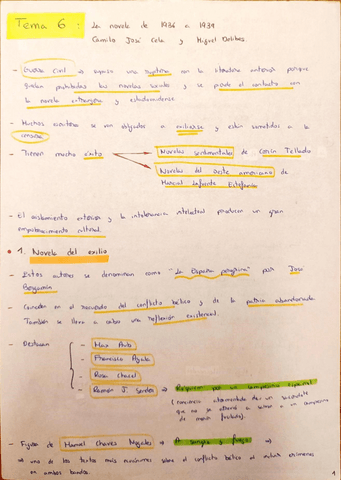 Tema 6: La novela de 1936 a 1939
Camilo José Cela y Miguel Delibes.
- Guerra Civil → supuso una ruptura con la literatura anterior porque
quedan prohibidas las novelas sociales y se pierde el contacto con
la novela extranjera y estadounidense.
- Muchos escritores se ven obligados a exiliarse y están sometidos a la
censura.
- Tienen mucho éxito
Novelas sentimentales de Corín Tellado
Novelas del oeste americano de
Marcial Lafuente Estefanía
- El aislamiento exterior y la intolerancia intelectual producen un gran
empobrecimiento cultural.
1. Novela del exilio
- Estos autores se denominan como "La España peregrina" por José
Bergamín
- Coinciden en el del conflicto bélico y de la patria abandonada.
También se lleva a cabo una reflexión existencial.
- Destacan
- Max Aub
- Francisco Ayala
- Rosa Chacel
- Ramón J. Sender ⇒ Réquiem por un campesino español
(conciencia atormentada de un sacerdote
que no se a salvar a un campesino
de morir fusilado).
- Figura de Manuel Chaves Nogales ⇒ A sangre y fuego ⇒
⇒ uno de los textos más sobre el conflicto bélico al incluir crímenes
en ambos bandos.
1